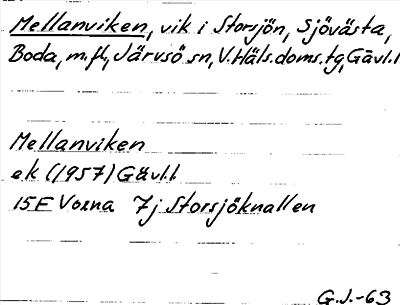 Mellanviken, vik i Storsjön, Sjövästa,
Boda, m.fl, Järvsö sn, V.Häls.doms.tg, Gävl.l
Mellanviken
ek (1957) Gävl.l
15F Voxna 7j Storsjöknallen
G.J.-63